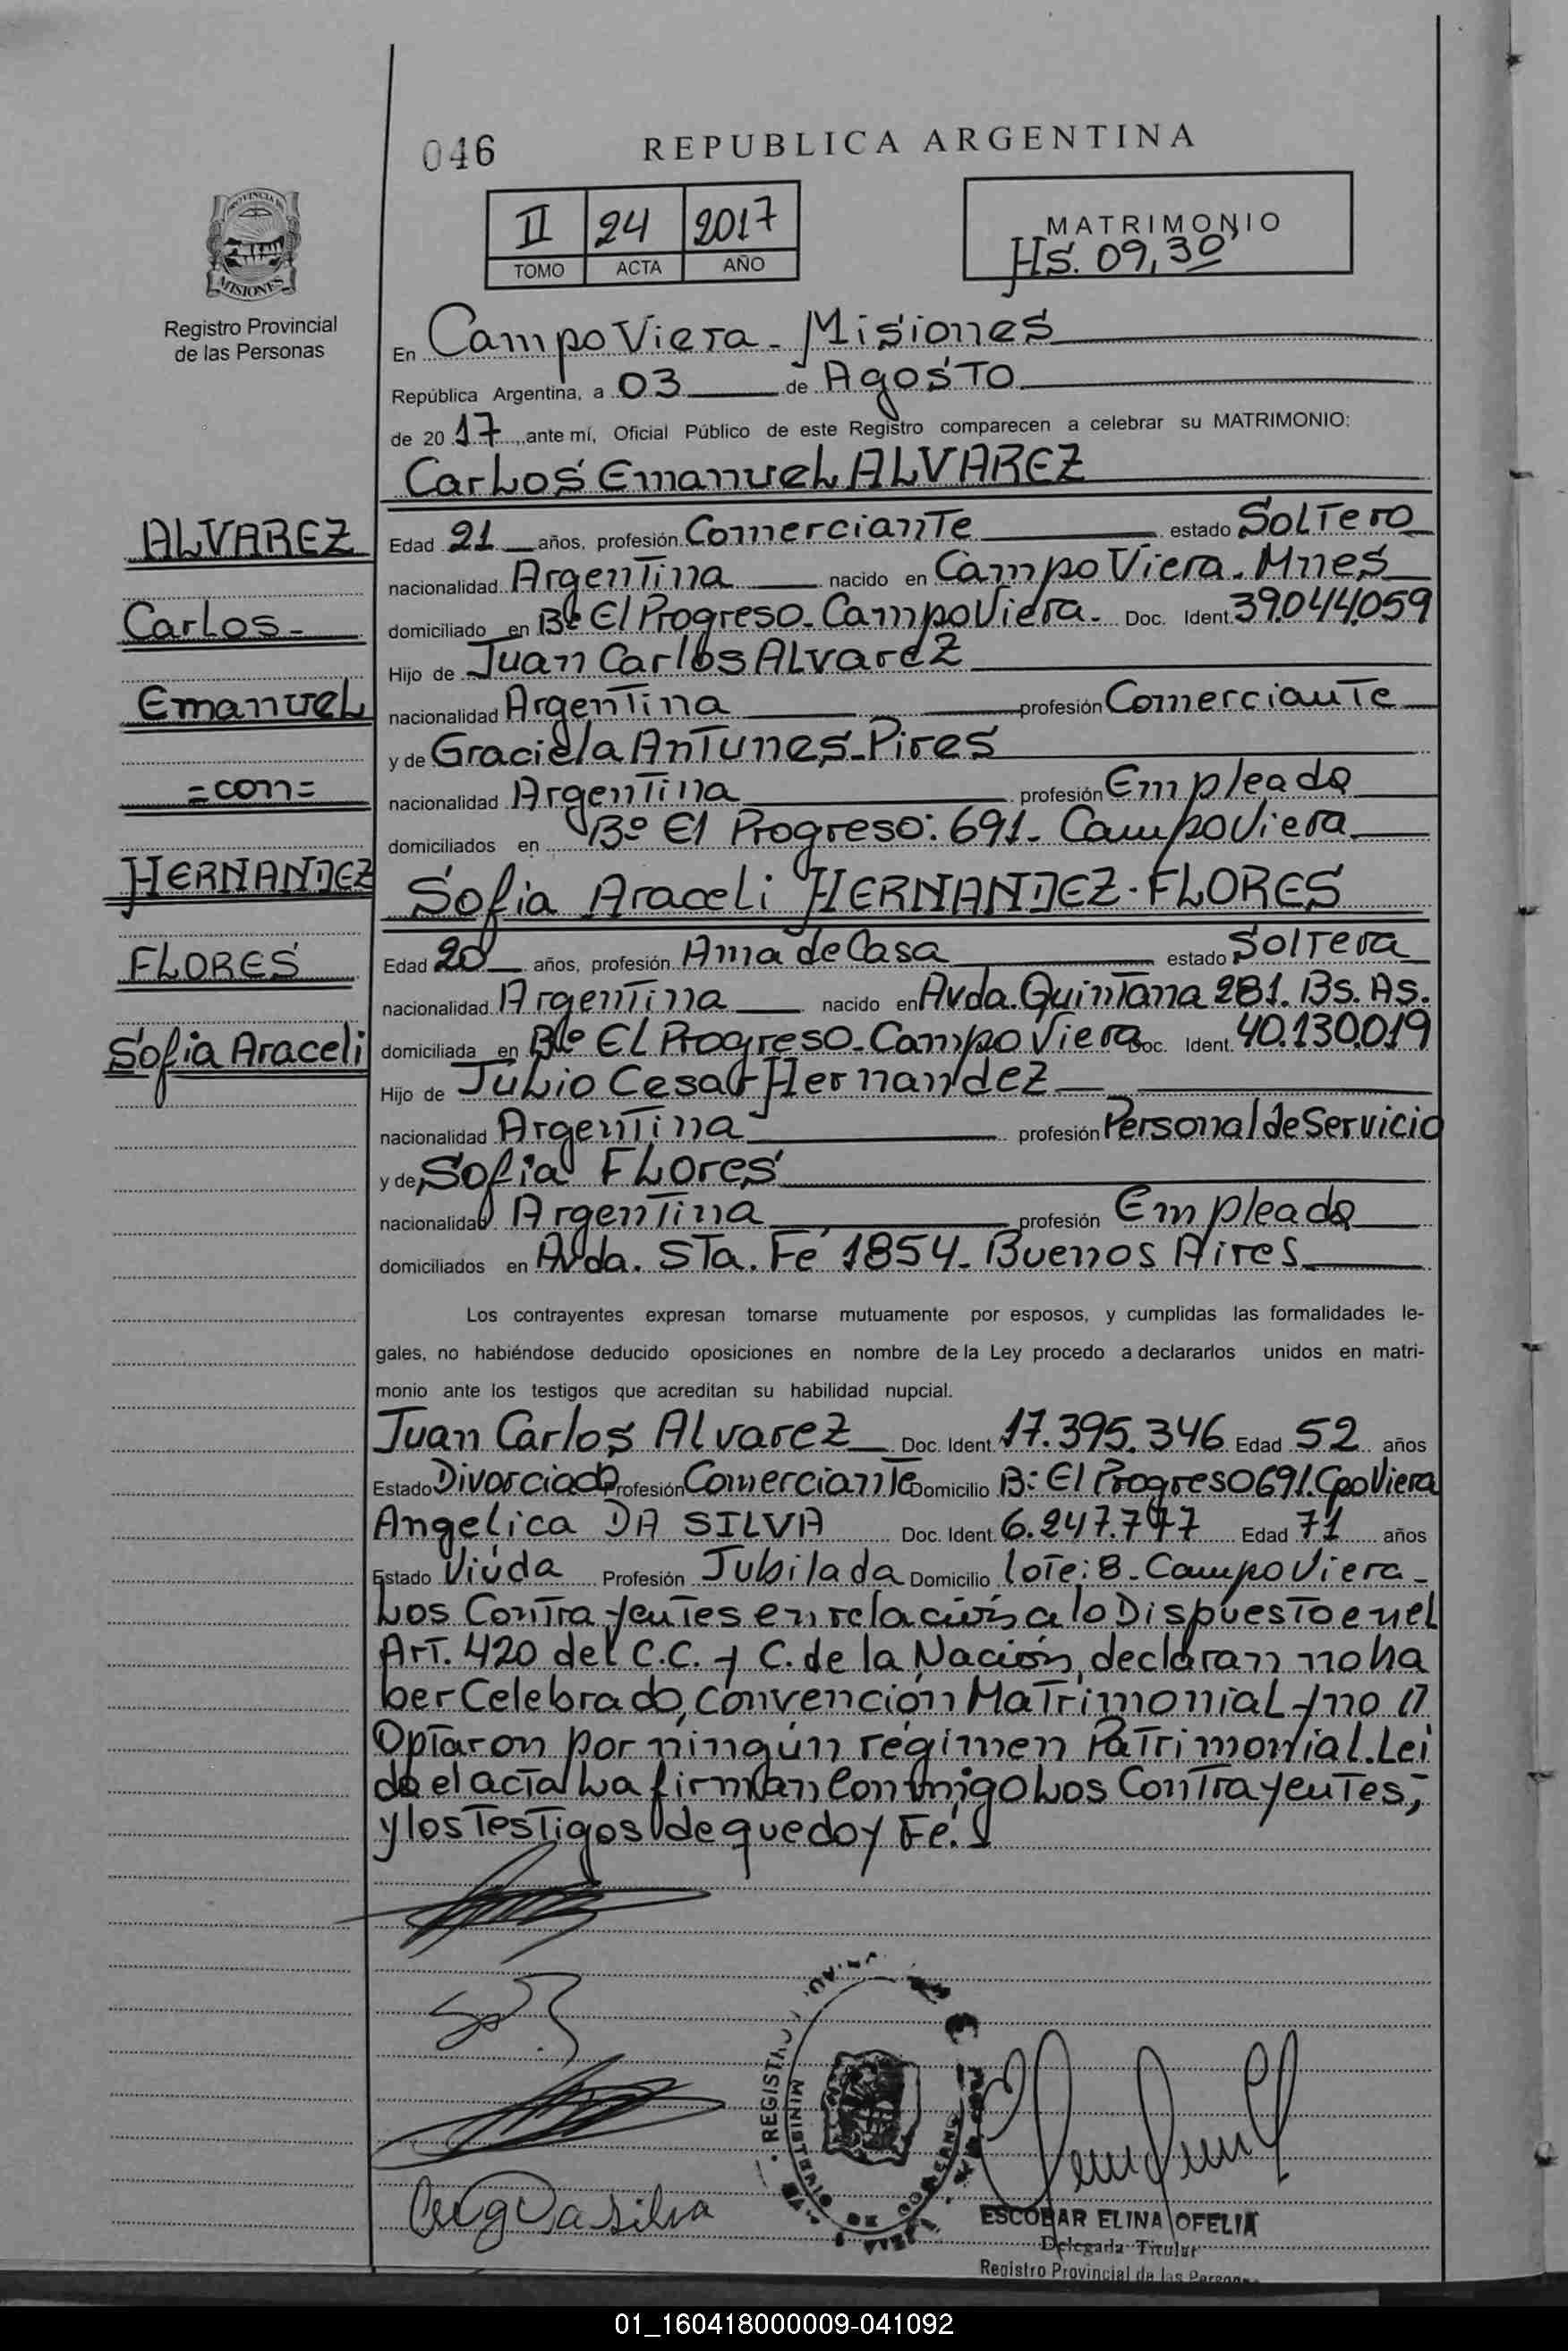 046
REPUBLICA ARGENTINA
PROVINCIA DE
MISIONES
Registro Provincial
de las Personas
II 24 2017
TOMO ACTA AÑO
MATRIMONIO
Hs. 09,30'
En Campo Viera - Misiones
República Argentina, a 03 de Agosto
de 20 17, ante mí, Oficial Público de este Registro comparecen a celebrar su MATRIMONIO:
Carlos Emanuel ALVAREZ
ALVAREZ
Carlos -
Emanuel
=con=
HERNANDEZ
FLORES
Sofia Araceli
Edad 21 años, profesión Comerciante estado Soltero
nacionalidad Argentina nacido en Campo Viera - Mnes
domiciliado en Bº El Progreso - Campo Viera - Doc. Ident. 39.044.059
Hijo de Juan Carlos Alvarez
nacionalidad Argentina profesión Comerciante
y de Graciela Antunes - Pires
nacionalidad Argentina profesión Empleada
domiciliados en Bº El Progreso: 691 - Campo Viera
Sofia Araceli HERNANDEZ - FLORES
Edad 20 años, profesión Ama de Casa estado Soltera
nacionalidad Argentina nacido en Avda. Quintana 281. Bs. As.
domiciliada en Bº El Progreso - Campo Viera Doc. Ident. 40.130.019
Hijo de Julio Cesar Hernandez
nacionalidad Argentina profesión Personal de Servicio
y de Sofia Flores
nacionalidad Argentina profesión Empleada
domiciliados en Avda. Sta. Fe 1854 - Buenos Aires
Los contrayentes expresan tomarse mutuamente por esposos, y cumplidas las formalidades le-
gales, no habiéndose deducido oposiciones en nombre de la Ley procedo a declararlos unidos en matri-
monio ante los testigos que acreditan su habilidad nupcial.
Juan Carlos Alvarez Doc. Ident. 17.395.346 Edad 52 años
Estado Divorciado Profesión Comerciante Domicilio B: El Progreso 691. Cpo Viera
Angelica DA SILVA Doc. Ident. 6.247.777 Edad 71 años
Estado Viuda Profesión Jubilada Domicilio lote: 8 - Campo Viera -
Los Contrayentes en relación a lo Dispuesto en el
Art. 420 del C.C. y C. de la Nación, declaran no ha
ber Celebrado, Convención Matrimonial y no
Optaron por ningún régimen Patrimonial. Lei
da el acta La firman Conmigo Los Contrayentes,
y los Testigos de que doy Fé.
REGISTRO
MINISTERIO DE GOBIERNO
Ang Da silva
ESCOBAR ELINA OFELIA
Delegada Titular
Registro Provincial de las Personas
01_160418000009-041092